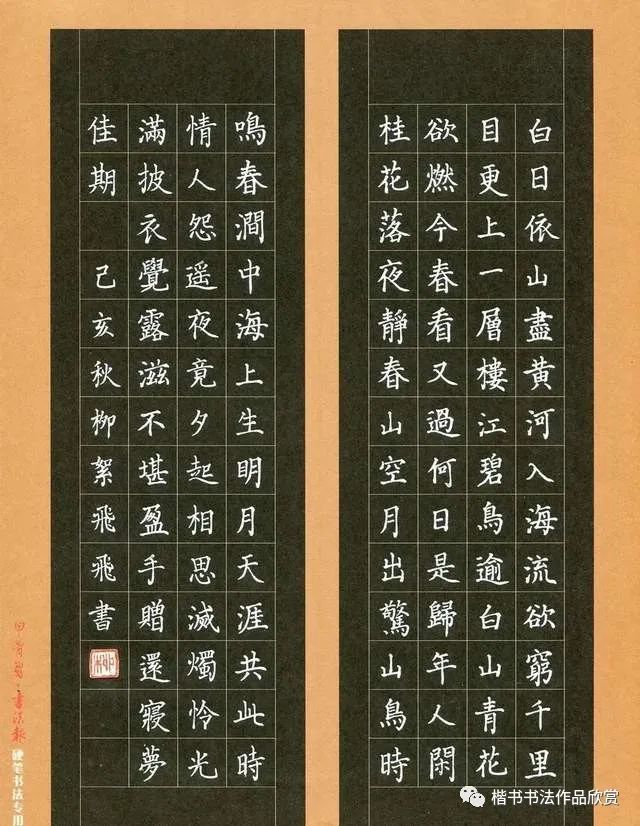 白日依山盡黄河入海流欲窮千里
目更上一層樓江碧鳥逾白山青花
欲燃今春看又過何日是歸年人閑
桂花落夜靜春山空月出驚山鳥時
鳴春澗中海上生明月天涯共此時
情人怨遥夜竟夕起相思滅燭怜光
滿披衣覺露滋不堪盈手贈還寢夢
佳期 己亥秋柳絮飛飛書
硬笔书法专用
楷书书法作品欣赏